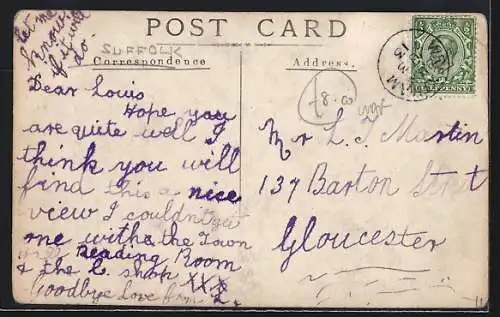 let me
know
if it will
do.
POST CARD
SUFFOLK
Correspondence
Address.
Dear Louis
Hope you
are quite well I
think you will
find this a nice
view I couldn't get
one with the Town
Reading Room
& the C shop XXX
Goodbye Love from L
£8.00
Mr L. J. Martin
137 Barton Street
Gloucester